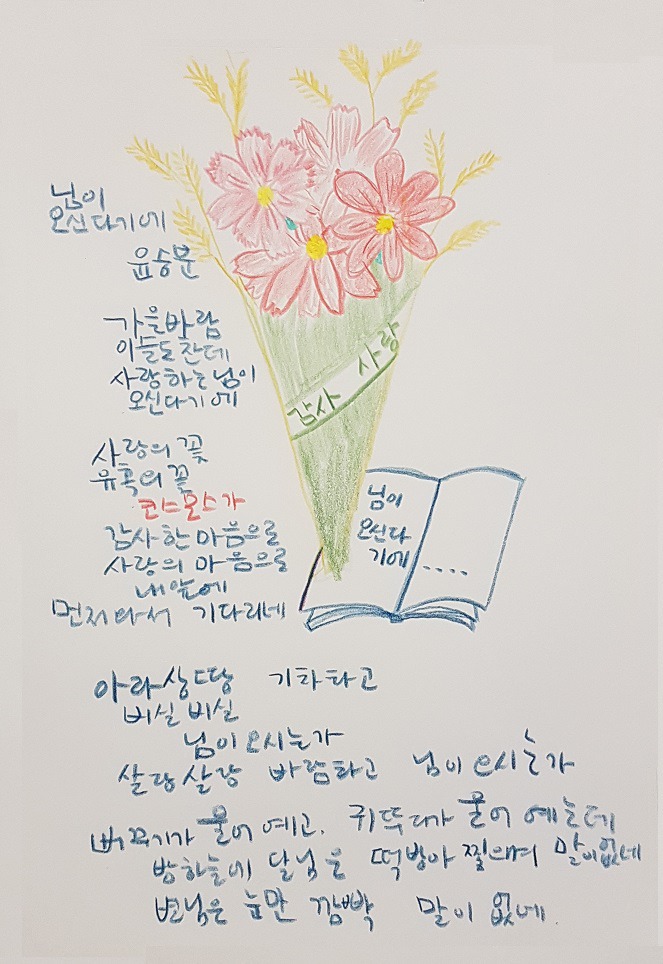 님이
오신다기에
윤승문
가을바람
이들도 찬데
사랑하는 님이
오신다기에
사랑의 꽃
유혹의 꽃
코스모스가
감사한 마음으로
사랑의 마음으로
내 앞에
먼저와서 기다리네
감사 사랑
님이
오신다
기에 .....
기차타고
비실비실
님이 오시는가
살랑살랑 바람타고 님이 오시는가
뻐꾸기가 울어 예고, 귀뚜라가 울어 예는데
밤하늘에 달님은 떡방아 찧으며 말이없네
별님은 눈만 깜빡 말이 없네.